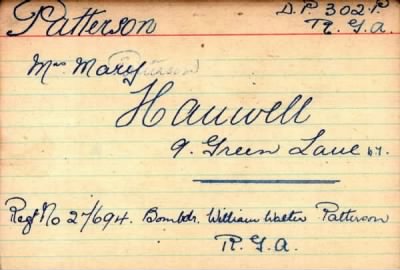 Patterson D.P. 302.P.
R.G.A.
Mrs Mary Patterson
Hanwell
9. Green Lane W7.
Regt No 27694. Bombdr. William Walter Patterson
R.G.A.